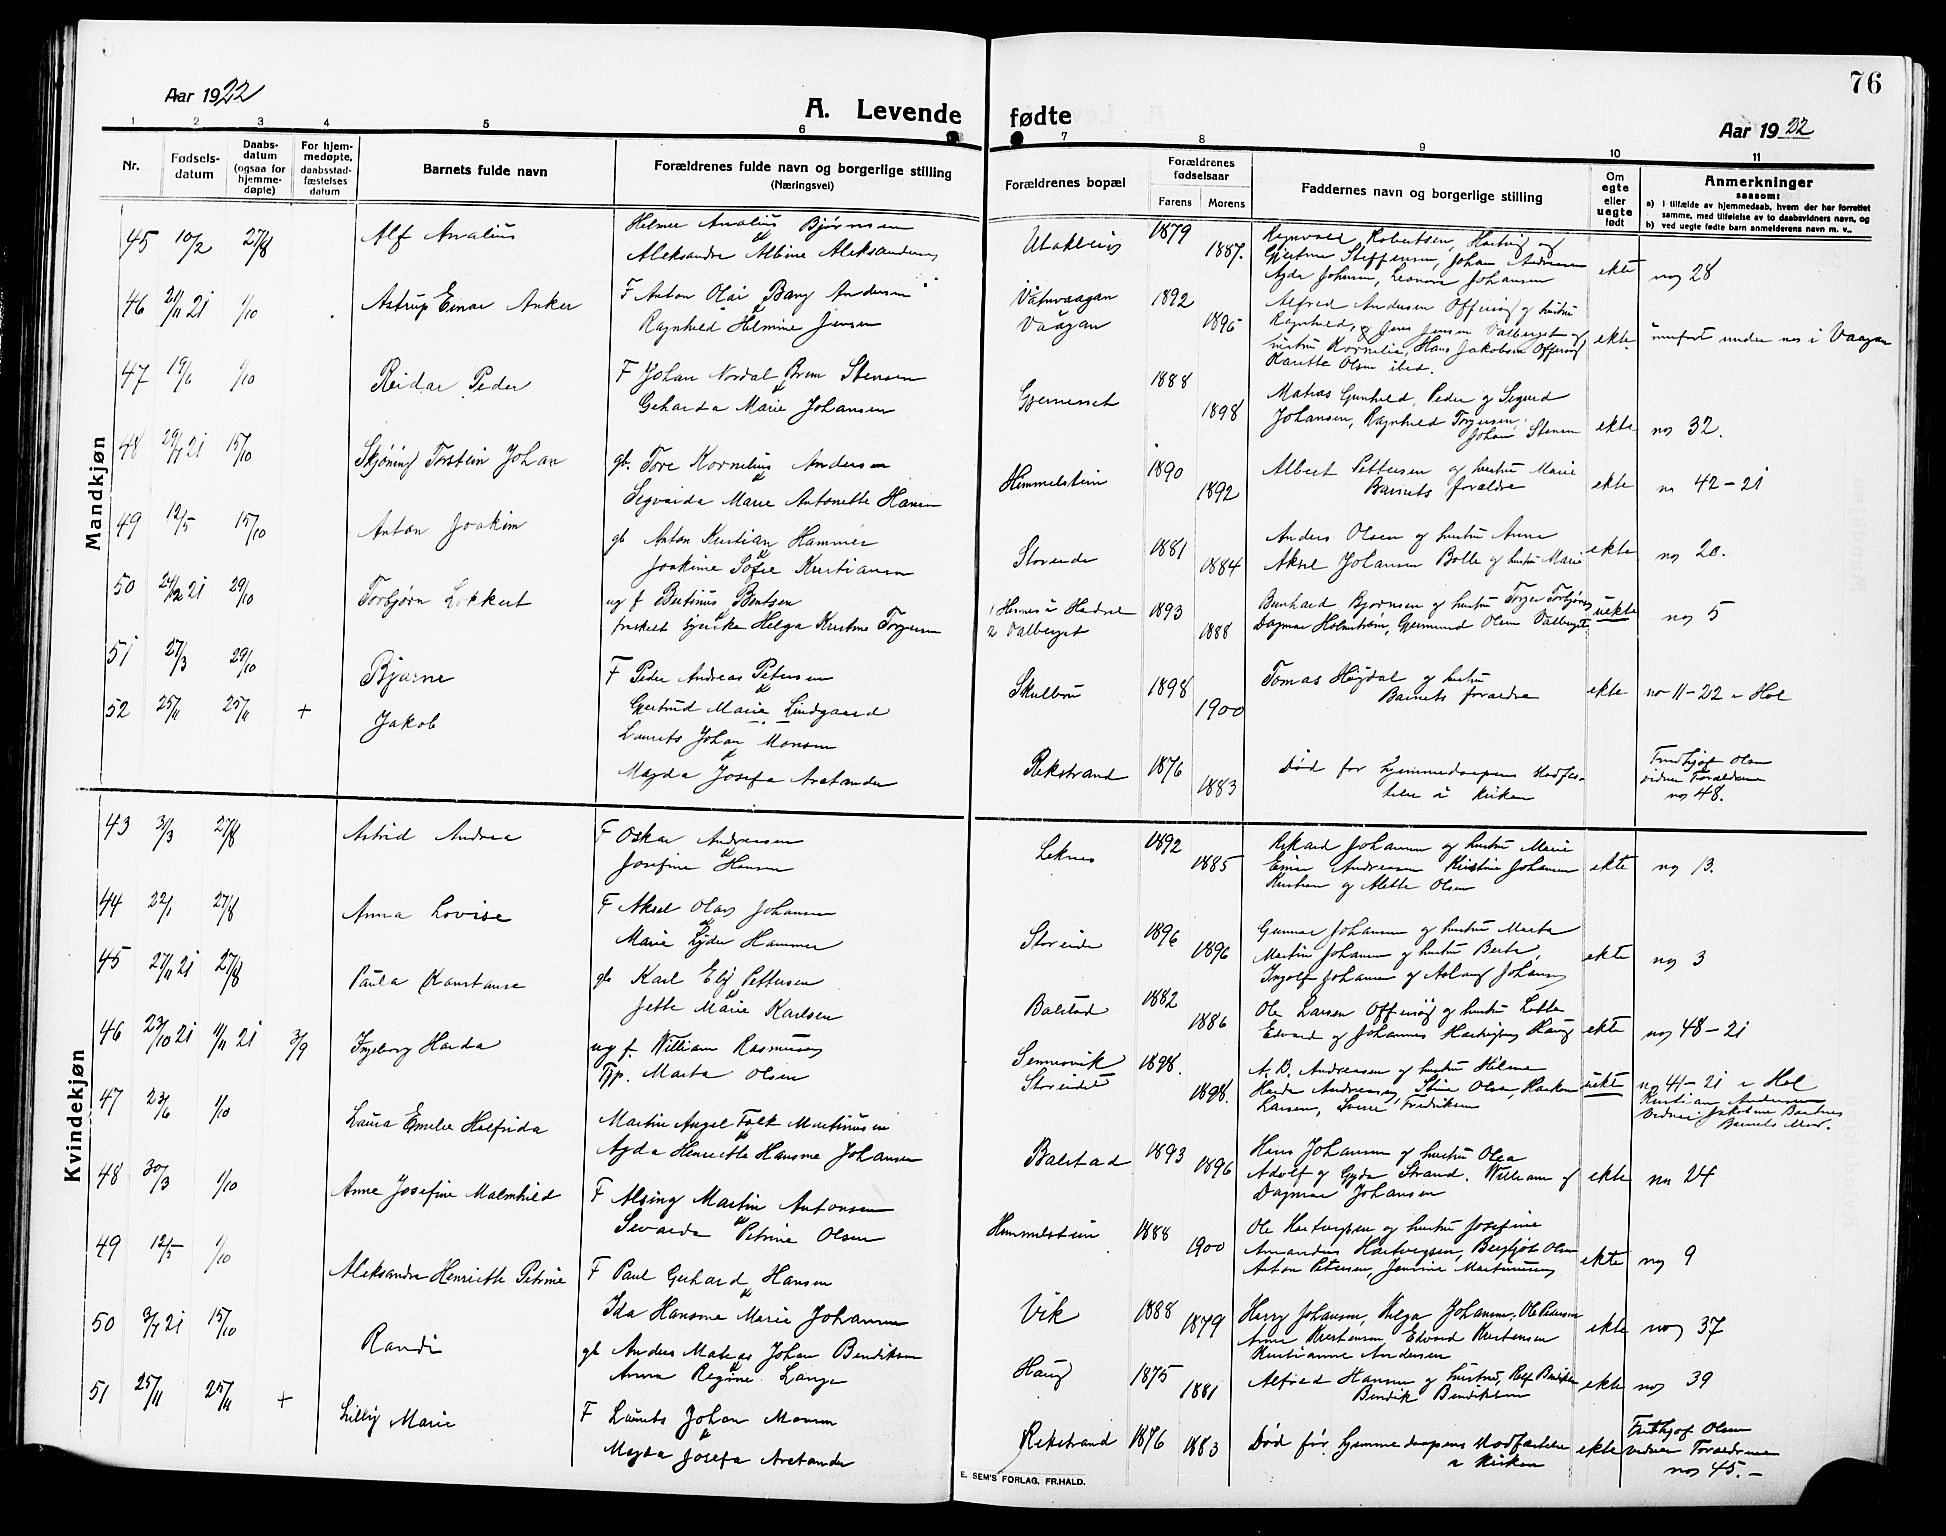 76
Aar 1922
A. Levende
fødte
Aar 1922
1 2 3 4 5 6 7 8 9 10 11
Nr.
Fødsels-
datum
Daabs-
datum
(ogsaa for
hjemme-
døpte)
For hjem-
medøpte,
daabsstad-
fæstelses
datum
Barnets fulde navn
Forældrenes fulde navn og borgerlige stilling
(Næringsvei)
Forældrenes bopæl
Forældrenes
fødselsaar
Farens Morens
Faddernes navn og borgerlige stilling
Om
egte
eller
uegte
født
Anmerkninger
saasom:
a) i tilfælde av hjemmedaab, hvem der har forrettet
samme, med tilføielse av to daabsvidners navn, og
b) ved uegte fødte barn anmelderens navn m. v..
Mandkjøn
45 10/2 27/8 Alf Analius Helmer Analius Bjørnsen 1879
Aleksandra Albine Aleksandersen 1887. ekte no 28
Gjertine Steffensen, Johan Andreassen
Agda Johansen, Leonore Johansen
46 1/10 Astrup Einar Anker F Anton Olai Bang Andersen Vaagan 1892 Alfred Andersen Offersøy og hustru
Ragnhild Helmine Jensen 1895 Ragnhild, og Jens Jensen Valberget og ekte innført under no i Vaagan
hustru Kornelia, Hans Jakobsen Offersøy
Karette Olsen ibid.
47 19/6 1/10 Reidar Peder F Johan Nordal Brun Stensen 1888 Matias Gunhild, Peder og Sigurd
Geharda Marie Johansen 1898 Johansen, Ragnhild Torgersen, ekte no 32.
Johan Stensen
48 29/7 21 15/10 Skjøning Torstein Johan gb. Tore Kornelius Andersen Himmelstein 1890 Albert Pettersen og hustru Marie
Segvarda Marie Antonette Hansen 1892 Barnets foraldre ekte no 42-21
49 12/5 15/10 Anton Joakim gb Anton Kristian Hammer Storeide 1881 Anders Olsen og hustru Anna
Joakime Sofie Kristiansen 1884 Aksel Johansen Bolle og hustru Marie ekte no 20.
50 29/10 Torbjørn Lokkert ug f Bertinus Bentsen 1893 Bernhard Bjørnsen og hustru
Helga Kristine Torgersen 2 Valberget 1888 Dagmar Holmstrøm, Gjermund Olsen Valberget uekte no 5
51 27/3 29/10 Bjarne F Peder Andreas Petersen Skulbru 1898 Tomas Høgdal og hustru
Gjertrud Marie Lindgaard 1900 Barnets foraldre ekte no 11-22 i Hol
52 25/11 25/11 + Jakob Laurits Johan Monsen Rekstrand 1876 Død før hjemmedaapens stadfæs-
Magda Josefa Arstander 1883 telse i kirken
Fridthjof Olsen
vidner Foraldrene
no 48.
Kvindekjøn
43 3/3 27/8 Astrid Andrea F Oskar Andreassen Leknes 1892 Rikard Johansen og hustru Marie
Josefine Hansen 1885 Einar Andreassen Kristine Johansen ekte no 13.
Kristian og Alette Olsen
44 22/1 27/8 Anna Lovise F Aksel Olaus Johansen Storeide 1896 Gunnar Johansen og hustru Marta
Marie Lyder Hammer 1896 Martin Johansen og hustru Berta, ekte no 3
Ingolf Johansen og Aslaug Johansen
45 27/11 21 27/8 Paula Konstanse gb Karl Elij Pettersen Balstad 1882 Ole Larsen Offersøy og hustru Lotte
Jette Marie Karlsen 1886 Edvard og Johannes Hartvigsen Haug ekte no 48-21
46 23/10 21 11/11 21 3/9 Ingeborg Harda ug f. William Rasmussen Sennesvik 1898. A. B. Andreassen og hustru Helene
Tjp. Marta Olsen Storeide 1898. Harda Andreassen, Stina Olsen, Haakon uekte no 41-21 i Hol
Larsen, Sverre Fredriksen
Kristian Andersen
vidner Jakobine
Barnets Mor.
47 23/6 1/10 Laura Emelie Halfrida Martin Angel Falk Martinussen Balstad 1893 Hans Johansen og hustru Olea
Agda Henriette Hansine Johansen 1896 Adolf og Gyda Strand. William og ekte no 24
Dagmar Johansen
48 30/3 1/10 Anne Josefine Malmhild F Alsing Martin Antonsen Himmelstein 1888 Ole Hartvigsen og hustru Josefine
Sevarda Petrine Olsen 1900 Amandus Hartvigsen, Bergljot Olsen ekte no 9
Anton Petersen, Jennine Martinussen
49 12/5 1/10 Aleksandra Henriette Petrine F Paul Gerhard Hansen Vik 1888 Harry Johansen, Helga Johansen, Ole Petersen
Ida Hansine Marie Johansen 1879 Anna Kristensen, Edvard Kristensen ekte no 37
Kristianne Andersen
50 3/7 21 15/10 Randi gb Anders Mateas Johan Bendiksen Haug 1875 Alfred Hansen og hustru, Rolf Bendiksen
Anna Regine Lange 1881 Bendik Bendiksen ekte no 39
51 25/11 25/11 + Lilly Marie F Laurits Johan Monsen Rekstrand 1876 Død før hjemmedaapens stadfæstelse
Magda Josefa Arstander 1883 i kirken ekte
Fridthjof Olsen
vidner Foraldrene
no 45.-
E. SEM'S FORLAG, FR.HALD.